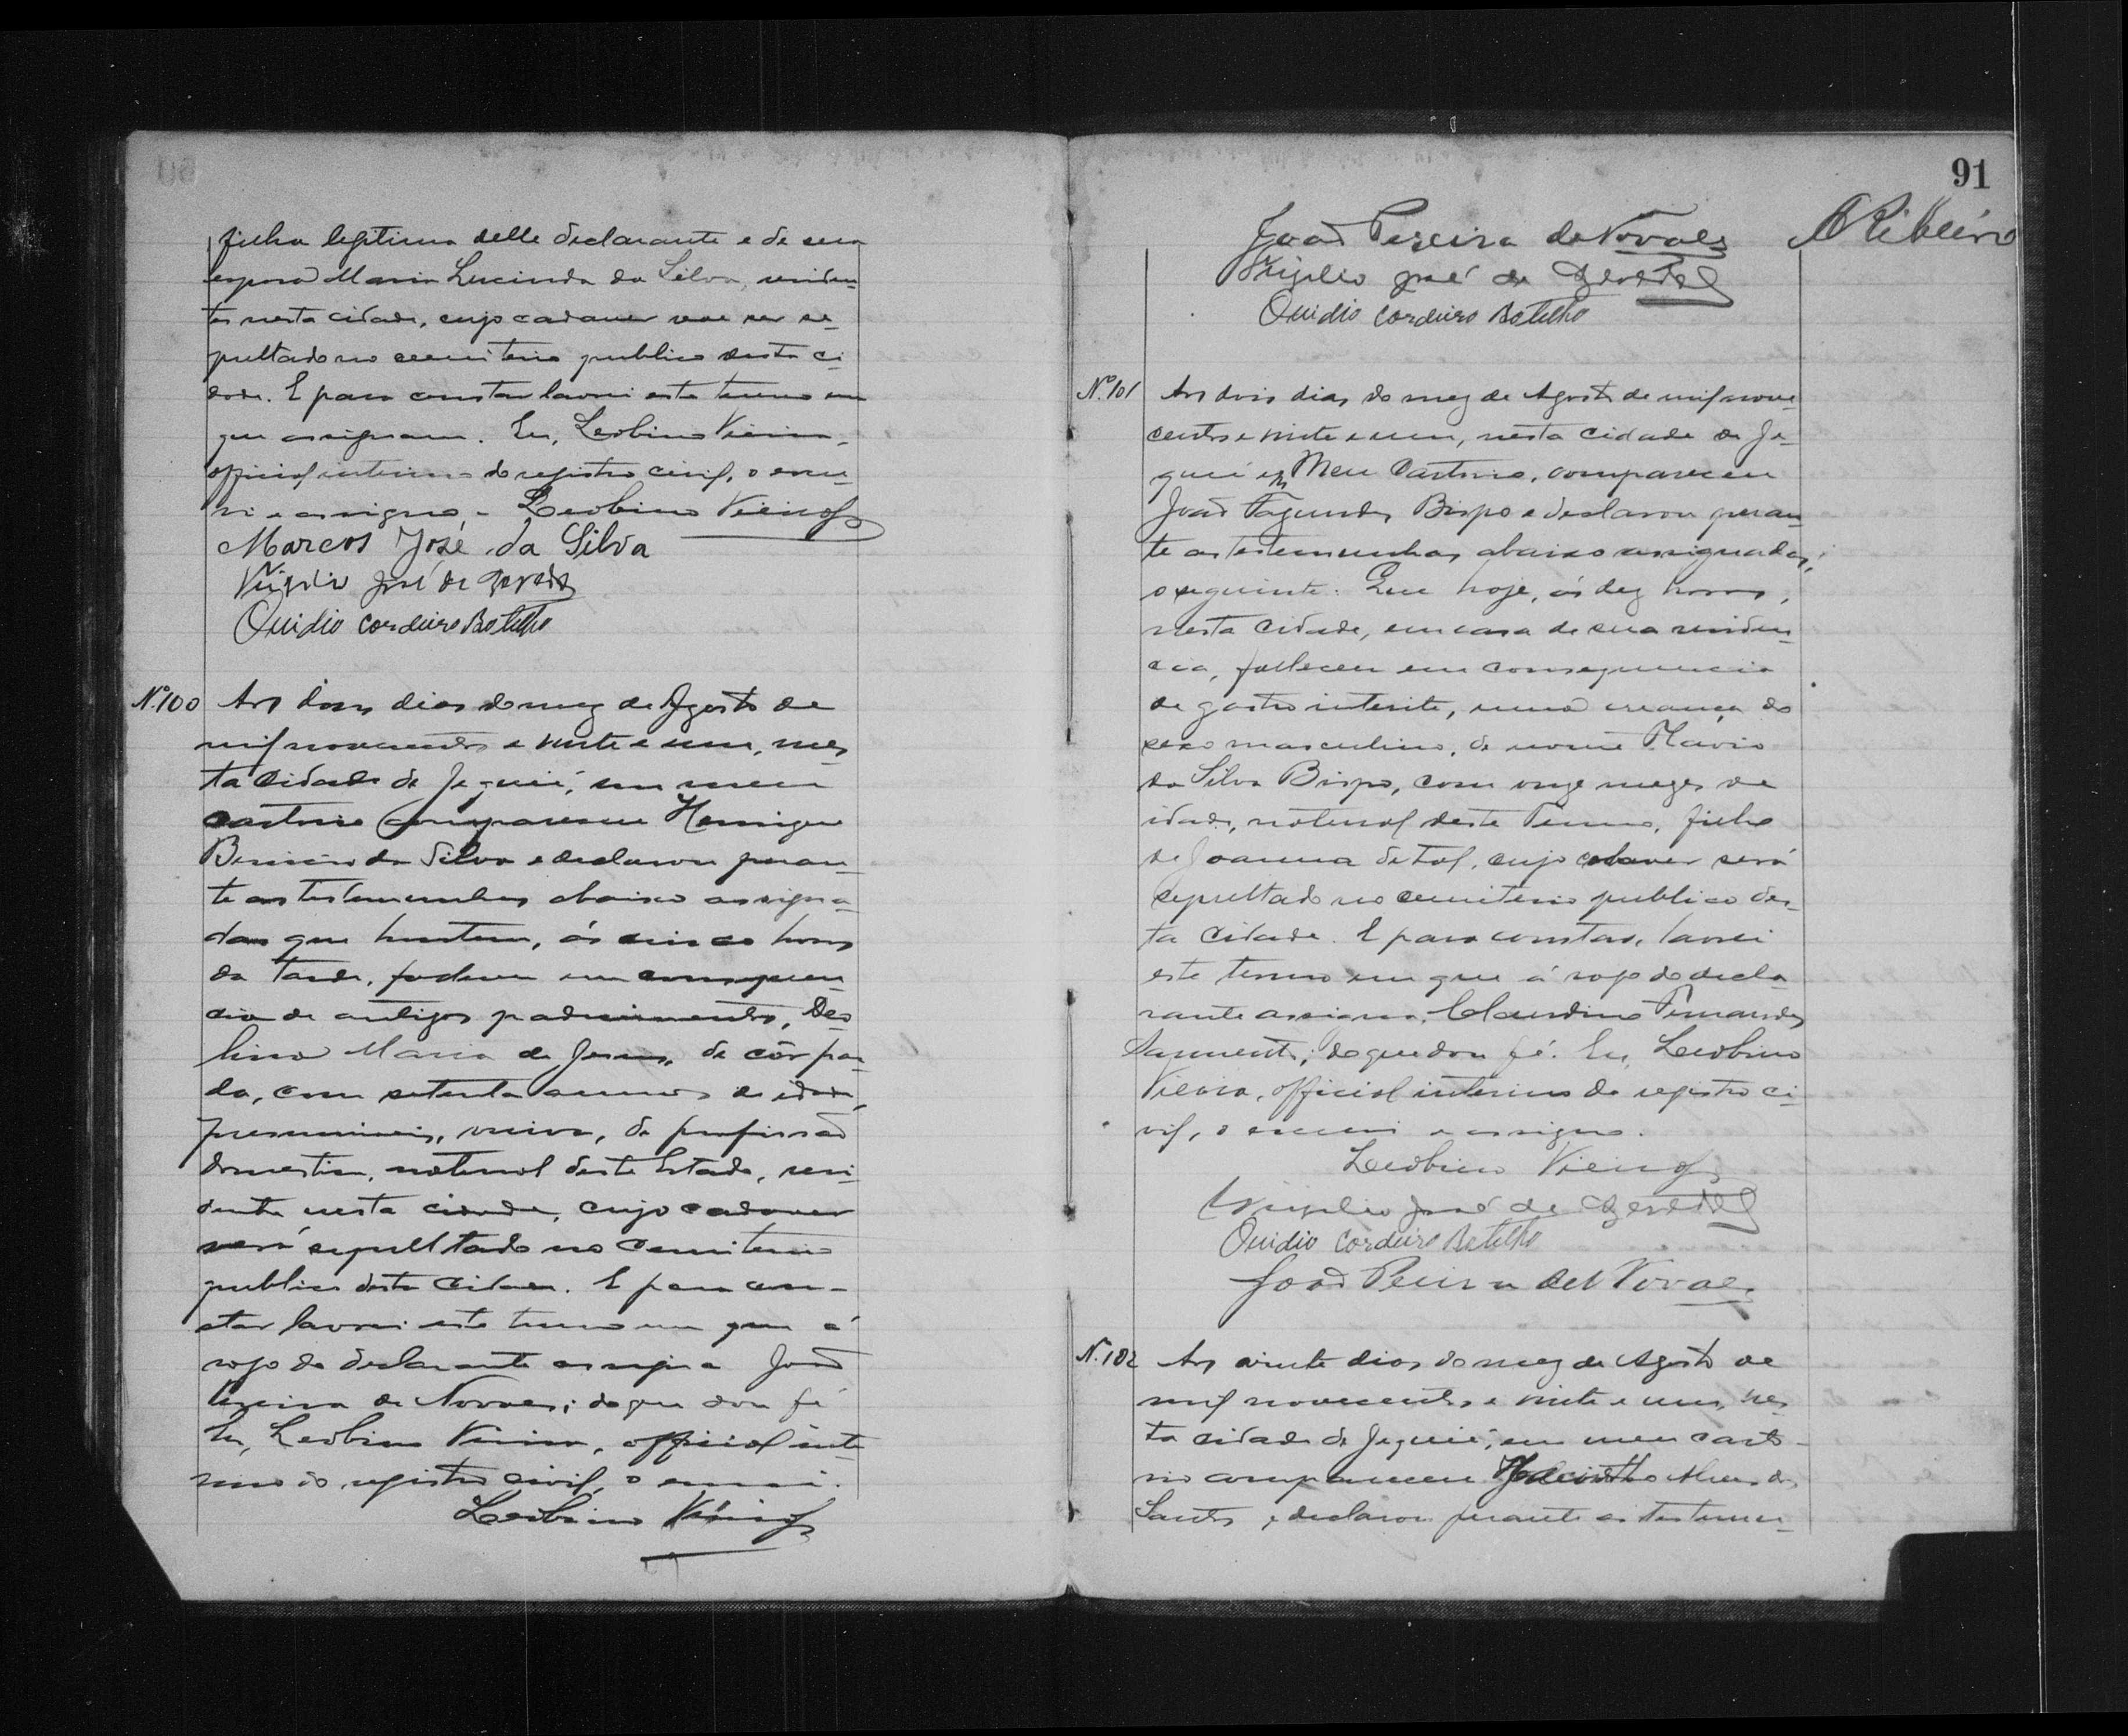 filha legitima delle declarante e de sua
esposa Maria Lucinda da Silva, residen-
tes nesta cidade, cujo cadaver vae ser se-
pultado no cemiterio publico desta ci-
dade. E para constar lavrei este termo em
que assignam. Eu, Leobino Vieira,
official interino do registro civil, o escre-
vi e assigno. Leobino Vieira
Marcos José da Silva
Virgilio José de Azevedo
Ouidio Cordeiro Botelho
Nº 100 Aos dois dias do mez de Agosto de
mil novecentos e vinte e um, nes
ta cidade de Jequié, em meu
cartorio compareceu
da Silva e declarou peran-
te as testemunhas abaixo assigna-
das que hontem, ás cinco horas
da tarde, falleceu em consequen-
cia de antigos padecimentos,
Maria de Jesus, de côr par-
da, com setenta annos de idade
presumiveis, viuva, de profissão
domestica, natural deste Estado, resi-
dente nesta cidade, cujo cadaver
será sepultado no cemiterio
publico desta cidade. E para con-
star lavrei este termo em que á
rogo do declarante assigna João
Pereira de Novaes; do que dou fé
Eu, Leobino Vieira, official inte
rino do registro civil, o escrevi.
Leobino Vieira
91
João Pereira de Novaes
ARibeiro
Virgilio José de Azevedo
Ouidio Cordeiro Botelho
Nº 101 Aos dois dias do mez de Agosto de mil nove-
centos e vinte e um, nesta cidade de Je-
quié em meu Cartorio, compareceu
João Fagundes Bispo e declarou peran-
te as testemunhas abaixo assignadas,
o seguinte: Que hoje, ás dez horas,
nesta cidade, em casa de sua residen-
cia, falleceu em consequencia
de gastro interite, uma creança do
sexo masculino, de nome Flavio
da Silva Bispo, com onze mezes de
idade, natural deste Termo, filho
de Joanna de tal, cujo cadaver será
sepultado no cemiterio publico des-
ta cidade. E para constar, lavrei
este termo em que á rogo do decla-
rante assigna, Claudino Fernandes
Sarmento; do que dou fé. Eu, Leobino
Vieira, official interino do registro ci-
vil, o escrevi e assigno.
Leobino Vieira
Virgilio José de Azevedo
Ouidio Cordeiro Botelho
João Pereira de Novaes
N. 102 Aos vinte dias do mez de Agosto de
mil novecentos e vinte e um, nes
ta cidade de Jequié, em meu carto-
rio compareceu Jacintho Alves dos
Santos e declarou perante as testemu-